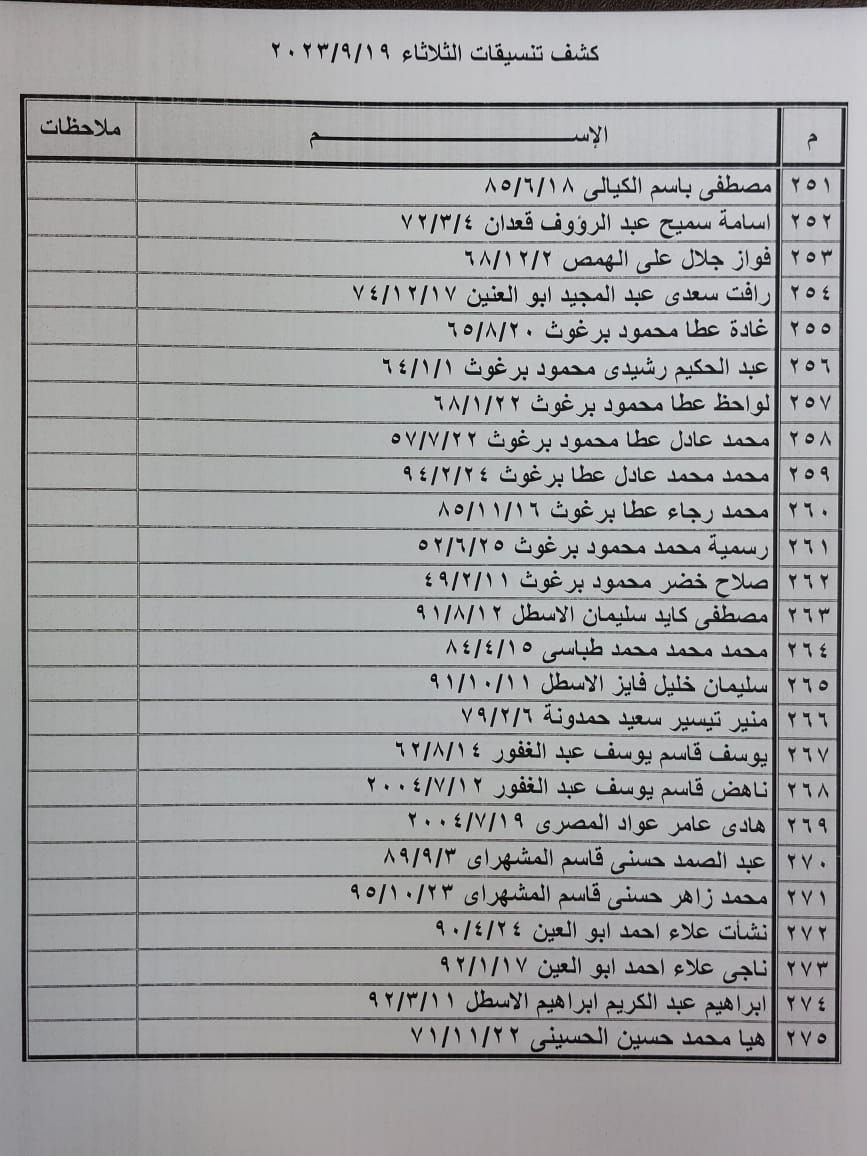 كشف تنسيقات الثلاثاء ٢٠٢٣/٩/١٩
م الإســـــــــم ملاحظات
٢٥١ مصطفى باسم الكيالى ٨٥/٦/١٨
٢٥٢ اسامة سميح عبد الرؤوف قعدان ٧٢/٣/٤
٢٥٣ فواز جلال على الهمص ٦٨/١٢/٢
٢٥٤ رافت سعدى عبد المجيد ابو العنين ٧٤/١٢/١٧
٢٥٥ غادة عطا محمود برغوث ٦٥/٨/٢٠
٢٥٦ عبد الحكيم رشيدى محمود برغوث ٦٤/١/١
٢٥٧ لواحظ عطا محمود برغوث ٦٨/١/٢٢
٢٥٨ محمد عادل عطا محمود برغوث ٥٧/٧/٢٢
٢٥٩ محمد محمد عادل عطا برغوث ٩٤/٢/٢٤
٢٦٠ محمد رجاء عطا برغوث ٨٥/١١/١٦
٢٦١ رسمية محمد محمود برغوث ٥٢/٦/٢٥
٢٦٢ صلاح خضر محمود برغوث ٤٩/٢/١١
٢٦٣ مصطفى كايد سليمان الاسطل ٩١/٨/١٢
٢٦٤ محمد محمد محمد طباسى ٨٤/٤/١٥
٢٦٥ سليمان خليل فايز الاسطل ٩١/١٠/١١
٢٦٦ منير تيسير سعيد حمدونة ٧٩/٢/٦
٢٦٧ يوسف قاسم يوسف عبد الغفور ٦٢/٨/١٤
٢٦٨ ناهض قاسم يوسف عبد الغفور ٢٠٠٤/٧/١٢
٢٦٩ هادى عامر عواد المصرى ٢٠٠٤/٧/١٩
٢٧٠ عبد الصمد حسنى قاسم المشهراى ٨٩/٩/٣
٢٧١ محمد زاهر حسنى قاسم المشهراى ٩٥/١٠/٢٣
٢٧٢ نشأت علاء احمد ابو العين ٩٠/٤/٢٤
٢٧٣ ناجى علاء احمد ابو العين ٩٢/١/١٧
٢٧٤ ابراهيم عبد الكريم ابراهيم الاسطل ٩٢/٣/١١
٢٧٥ هيا محمد حسين الحسينى ٧١/١١/٢٢